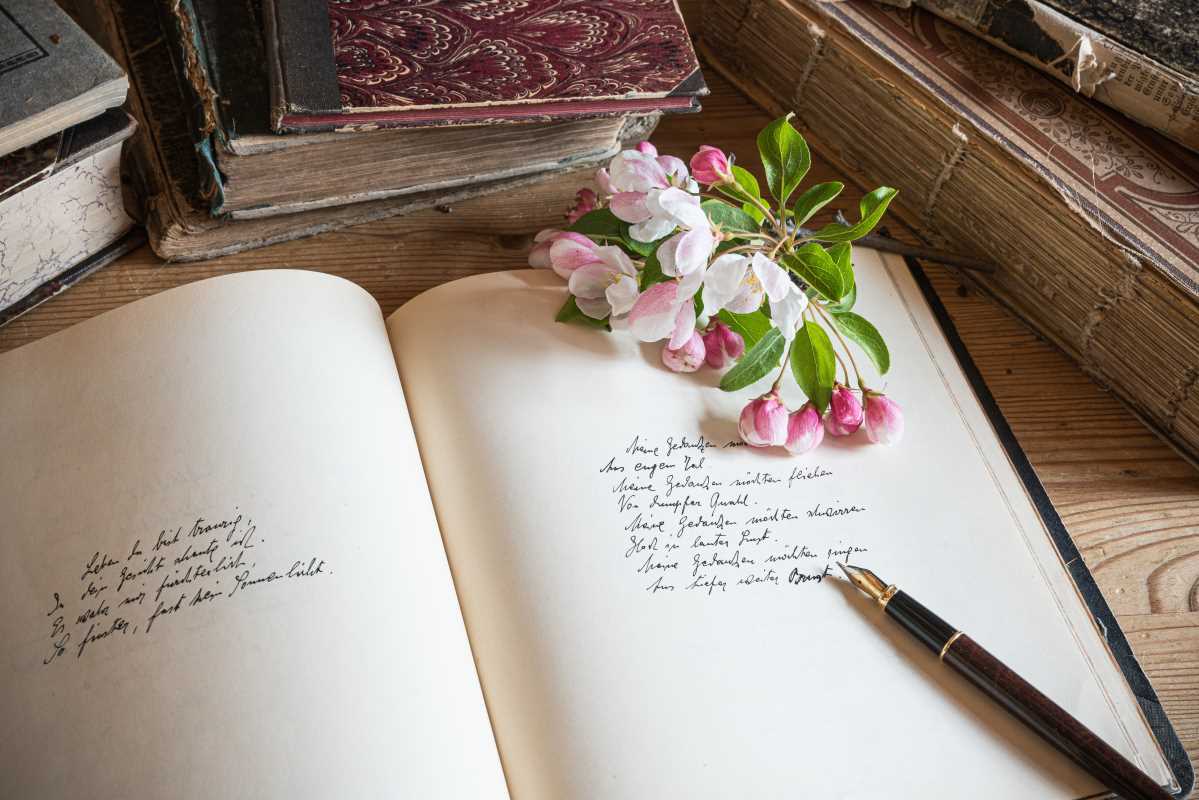 Leben du bist traurig,
In dein Gesicht schaute ich.
Es war nur fürchterlich,
So finster, fast kein Sonnenlicht.
Meine Gedanken
Aus engem Tal.
Meine Gedanken möchten fliehen
Von dumpfer Qual.
Meine Gedanken möchten schwirren
Hoch in lauter Lust.
Meine Gedanken möchten singen
Aus tiefer weiter Brust